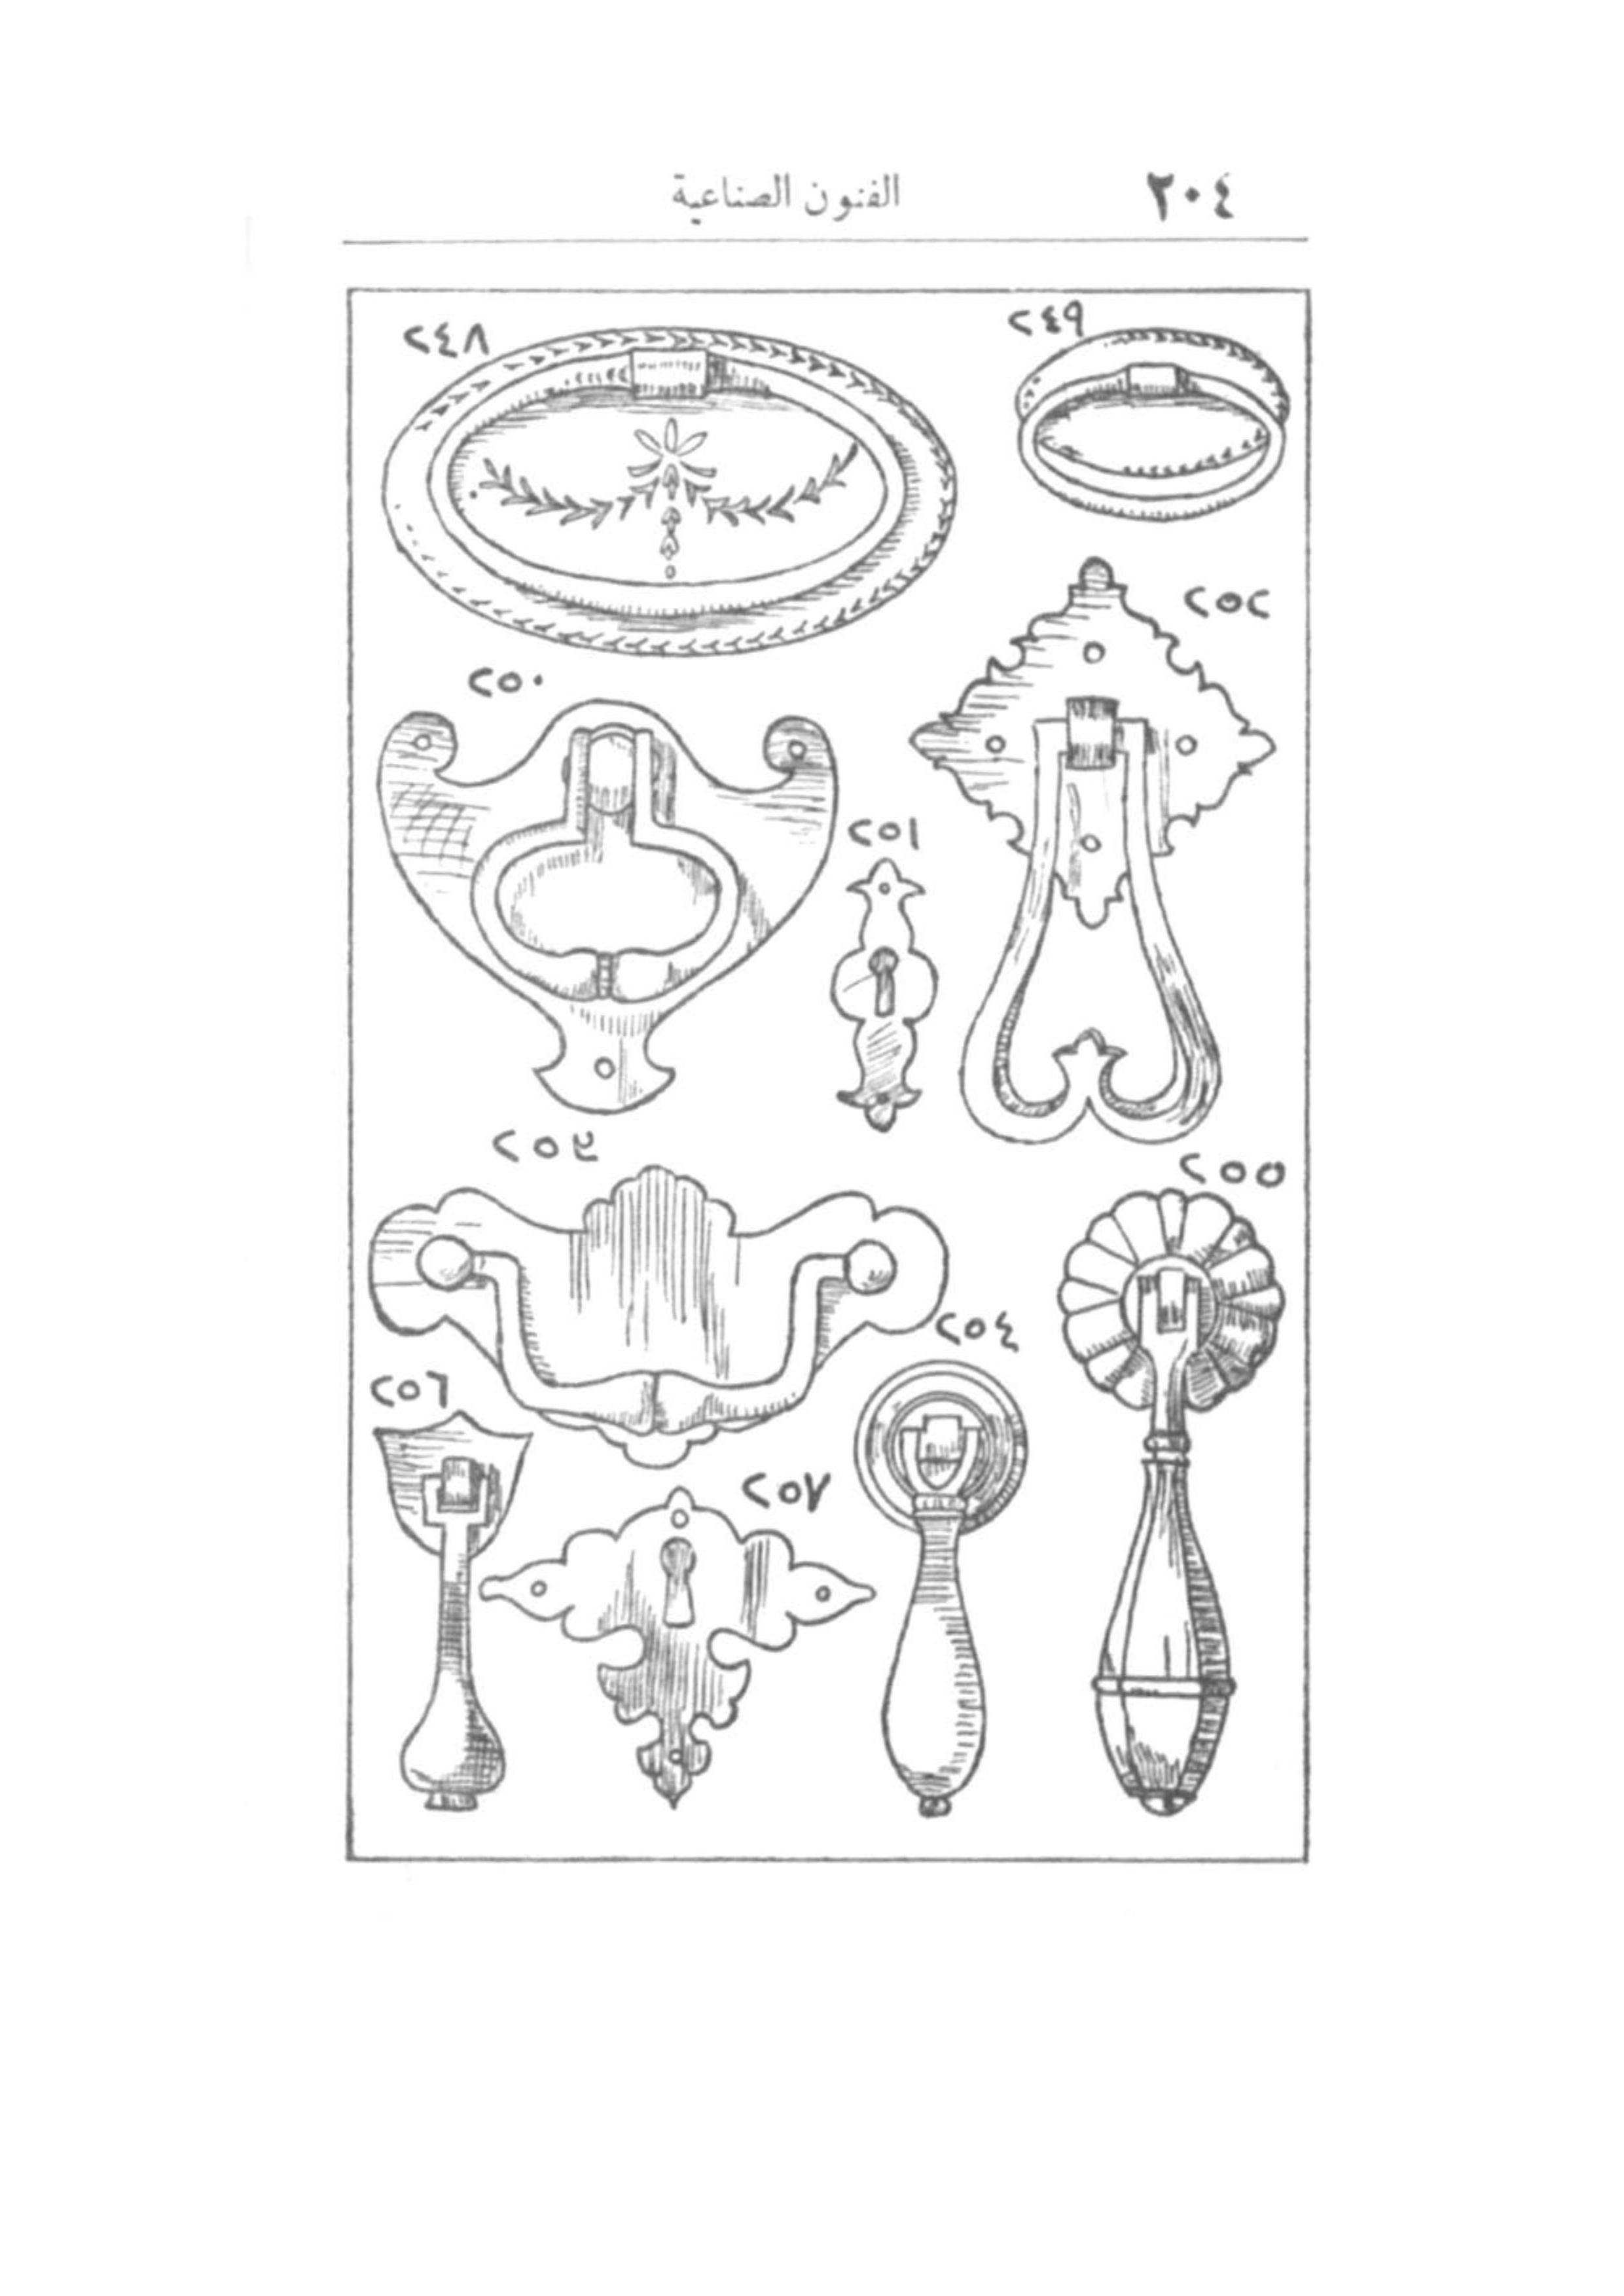 ٢٠٤
الفنون الصناعية
٢٤٩
٢٤٨
٢٥٢
٢٥٠
٢٥١
٢٥٣
٢٥٥
٢٥٤
٢٥٦
٢٥٧